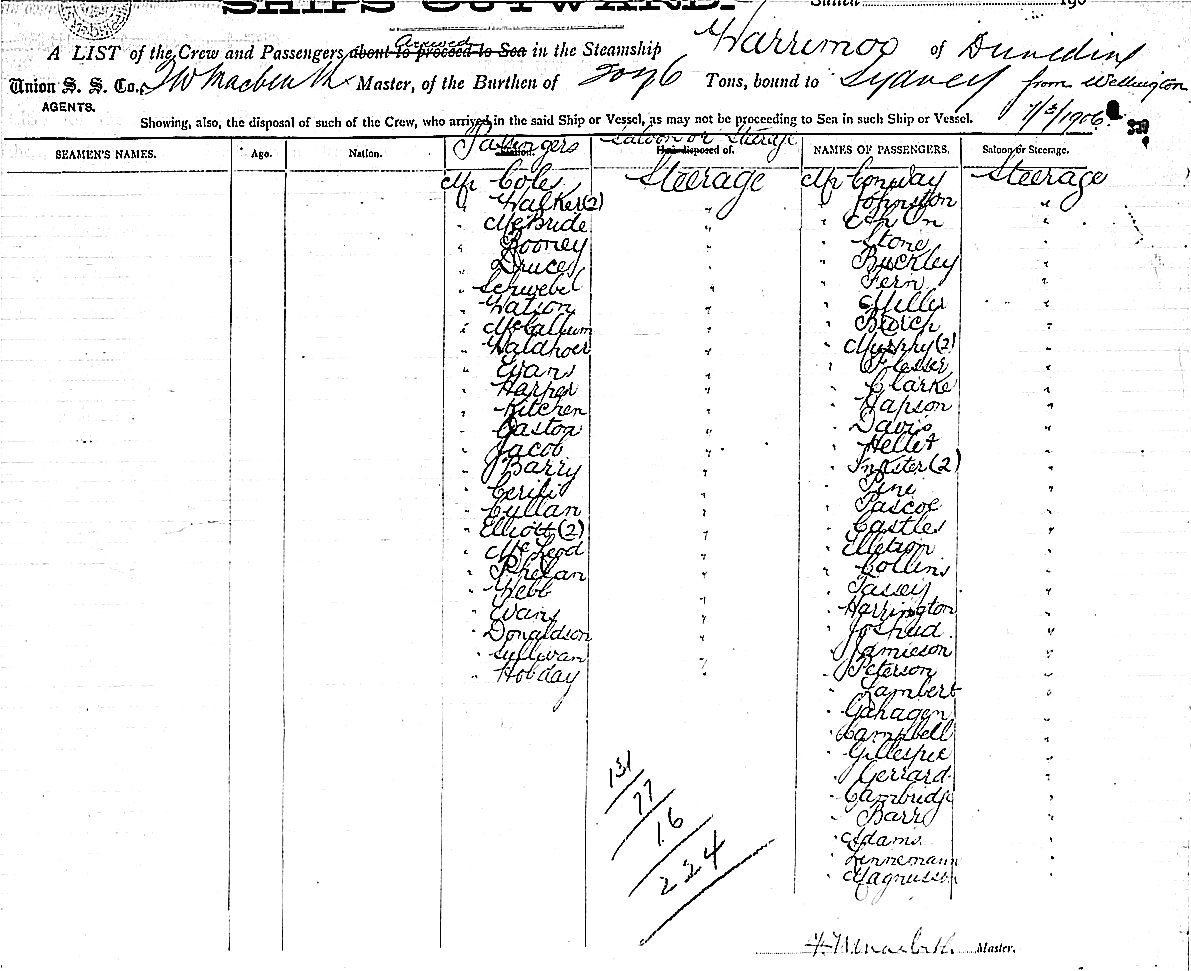 SHIPS OUTWARD.
A LIST of the Crew and Passengers about to proceed to Sea arrived in the Steamship Warrimoo of Dunedin
Union S. S. Co., Master, of the Burthen of Tons, bound to Sydney from Wellington
AGENTS.
Showing, also, the disposal of such of the Crew, who arrived in the said Ship or Vessel, as may not be proceeding to Sea in such Ship or Vessel. 1906
Passengers Saloon or Steerage
SEAMEN'S NAMES. Age. Nation. Station. How disposed of. NAMES OF PASSENGERS. Saloon or Steerage.
Mr Coles Steerage
" Walker (2) "
" McBride "
" Rooney "
" Druce "
" Schwebel "
" Watson "
" McCallum "
" Waldhoer "
" Evans "
" Harper "
" Kitchen "
" Gaston "
" Jacob "
" Barry "
" "
" Cullan "
" Elliott (2) "
" McLeod "
" Phelan "
" Webb "
" Evans "
" Donaldson "
" Sullivan "
" Hobday "
Mr Conway Steerage
" Johnston "
" Ah On "
" Stone "
" Buckley "
" Fern "
" Miller "
" "
" Murphy (2) "
" "
" Clarke "
" Hapson "
" Davis "
" Hellet "
" Inkster (2) "
" Pini "
" Pascoe "
" Castles "
" Elletson "
" Collins "
" "
" Harrington "
" Joshua "
" Jamieson "
" Peterson "
" Lambert "
" Gahagen "
" Campbell "
" Gillespie "
" Gerrard "
" Cambridge "
" Barr "
" Adams "
" Linnemann "
" Magnusson "
131
77
16
224
Master.